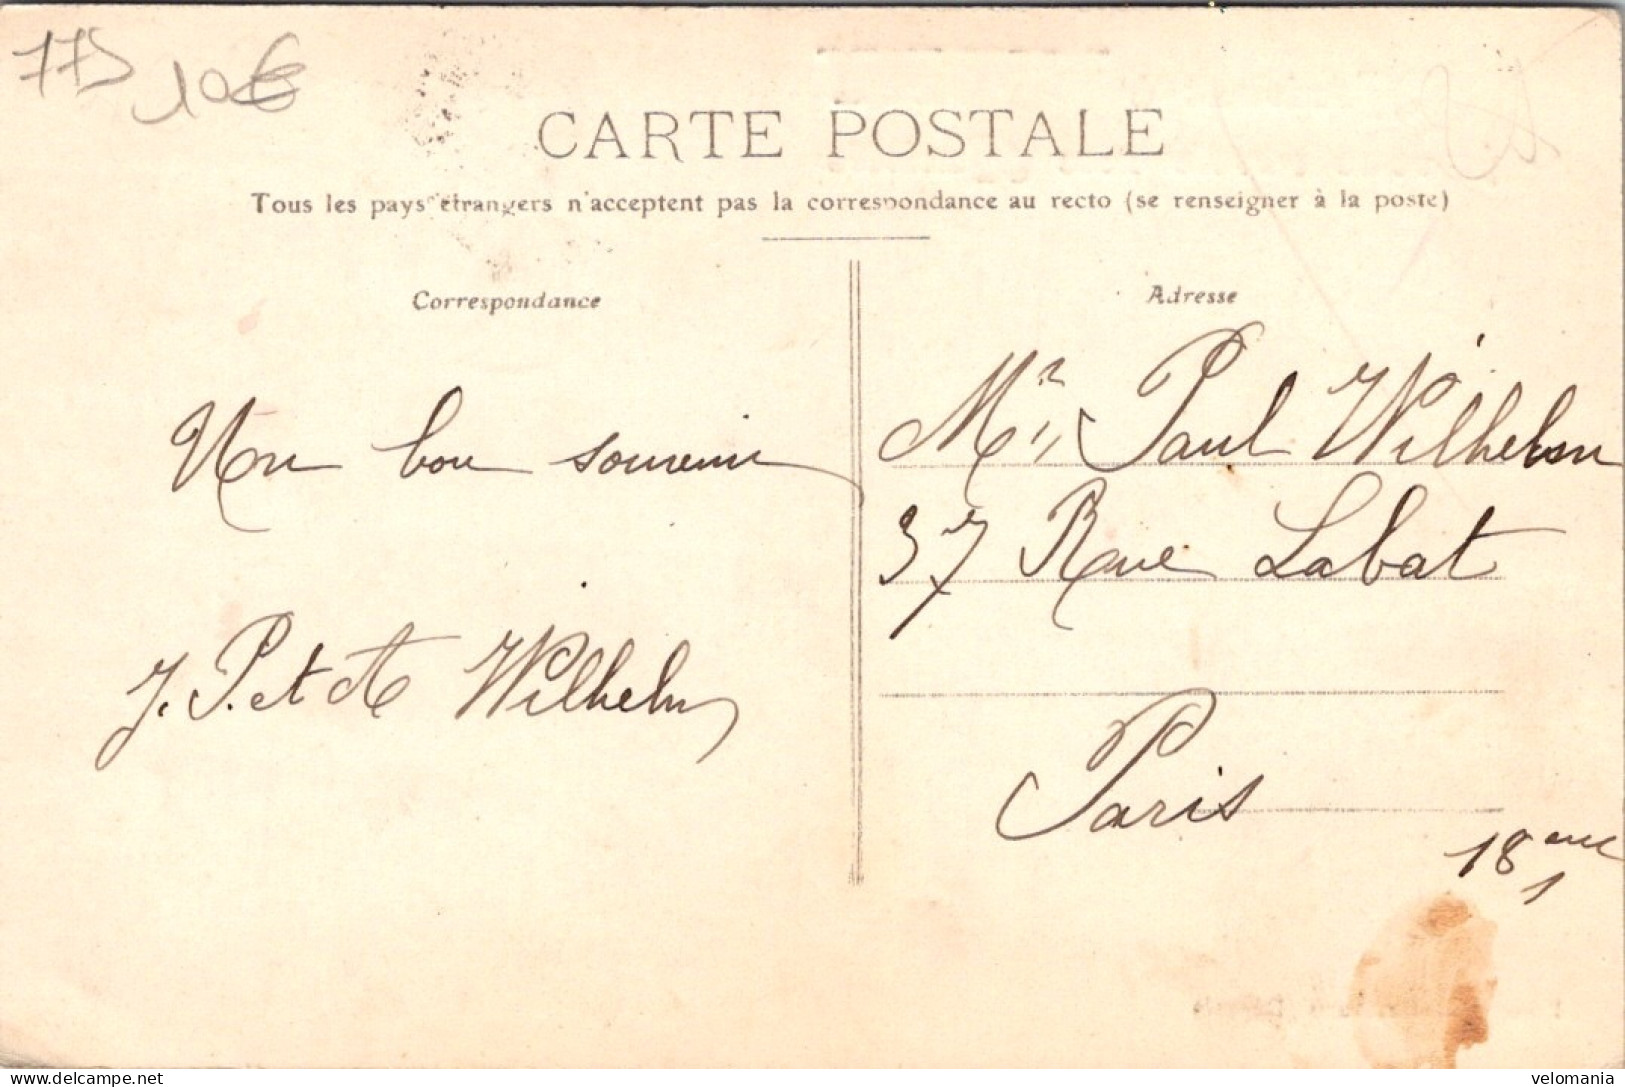 775
10€
CARTE POSTALE
Tous les pays étrangers n'acceptent pas la correspondance au recto (se renseigner à la poste)
Correspondance
Adresse
Un bon souvenir
J. P. et A Wilhelm
Mr Paul Wilhelm
37 Rue Labat
Paris
18eme
velomania